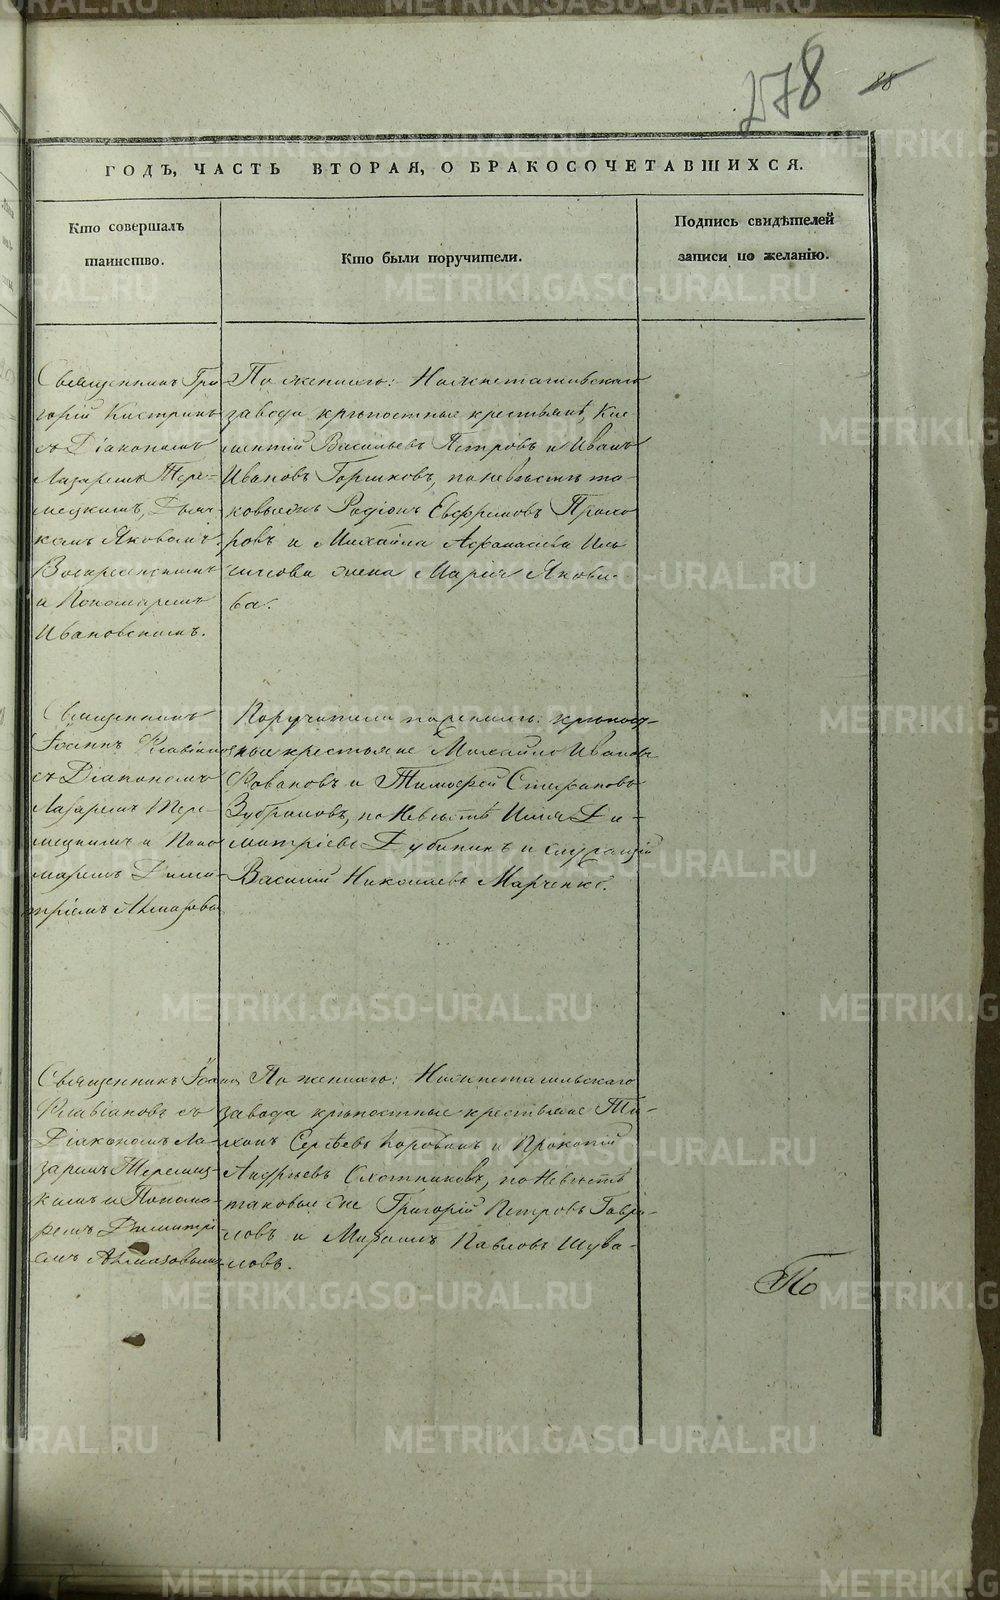 METRIKI.GASO-URAL.RU
278
88
ГОДЪ, ЧАСТЬ ВТОРАЯ, О БРАКОСОЧЕТАВШИХСЯ.
Кто совершалъ
таинство.
Кто были поручители.
Подпись свидѣтелей
записи по желанію.
Священникъ Гри-
горій Кастринъ
съ Діакономъ
Лазаремъ Тере-
мецкимъ, Дьяч-
комъ Яковомъ
Воскресенскимъ
и Пономаремъ
Ивановскимъ.
По женихѣ: Нижнетагильскаго
завода крѣпостные крестьяне, Кле-
ментій Васильевъ Петровъ и Иванъ
Ивановъ Горшковъ, по невѣстѣ та-
ковые Родіонъ Евфимовъ Прохо-
ровъ и Михайла Афанасьева
жена Марія Яковле-
ва.
Священникъ
Іоаннъ Флавіановъ
съ Діакономъ
Лазаремъ Тере-
мецкимъ и Поно-
маремъ Дими-
тріемъ Алмазовымъ
Поручители по женихѣ: крѣпост-
ные крестьяне Михайло Ивановъ
и Тимофей Стефановъ
Зубриловъ, по Невѣстѣ Илья Ди-
митріевъ Дубининъ и служащій
Василій Николаевъ Марченко.
Священникъ Іоаннъ
Флавіановъ съ
Діакономъ Ла-
заремъ Теремец-
кимъ и Понома-
ремъ Димитрі-
емъ Алмазовымъ
По женихѣ: Нижнетагильскаго
завода крѣпостные крестьяне Ти-
хонъ Сергѣевъ Коровинъ и Прокопій
Андреевъ Охотниковъ, по Невѣстѣ
таковые же Григорій Петровъ Гаври-
ловъ и Павловъ Шува-
ловъ.
По